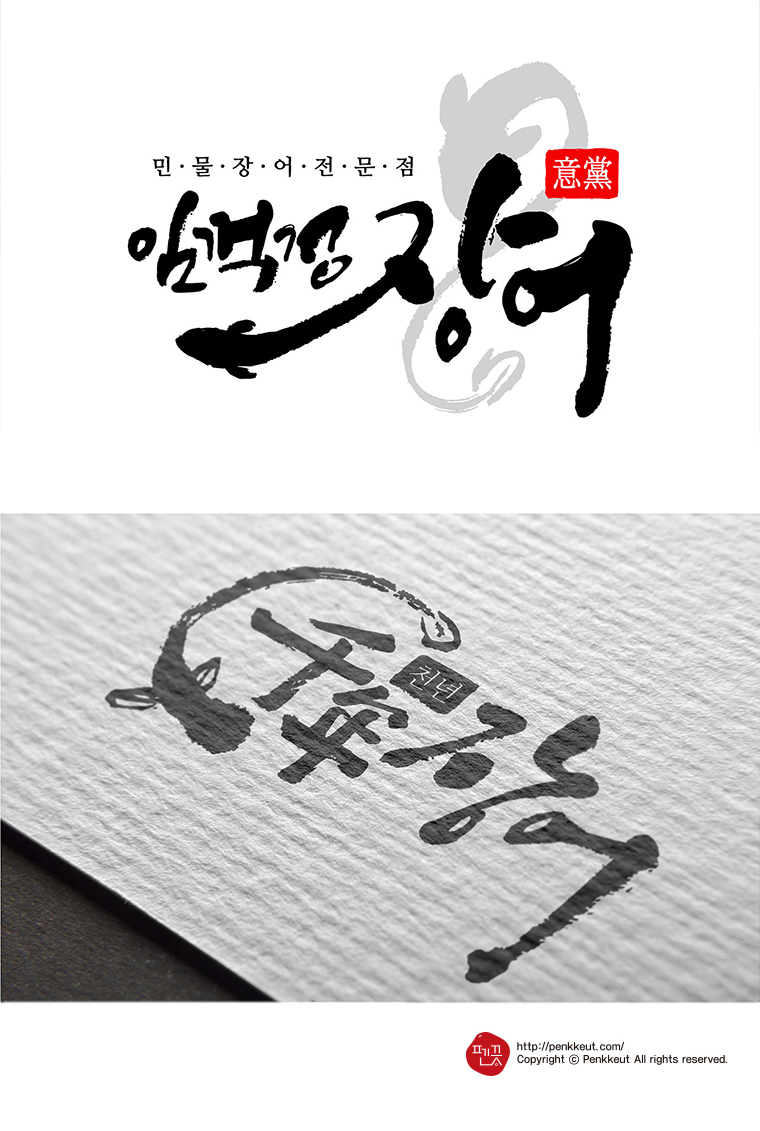 민·물·장·어·전·문·점
意黨
임꺽정 장어
천년
장어
http://penkkeut.com/
Copyright ⓒ Penkkeut All rights reserved.